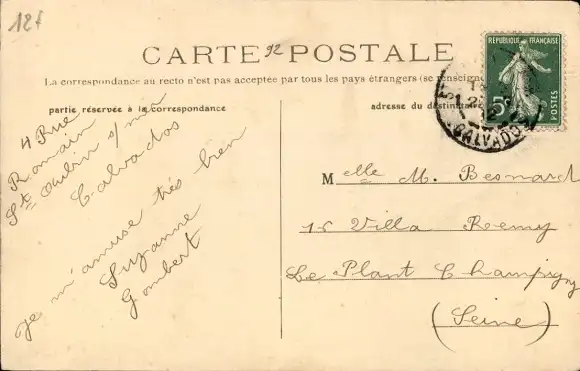 12f
CARTE POSTALE
92
La correspondance au recto n'est pas acceptée par tous les pays étrangers (se renseigne
partie réservée à la correspondance
adresse du destinataire
REPUBLIQUE FRANÇAISE
5c
POSTES
CALVADOS
4 Rue
Romain
St Aubin s/ mer
Calvados
Je m'amuse très bien
Suzanne
Gombert
Melle M. Besnard
15 Villa Remy
Le Plant Champigny
(Seine)